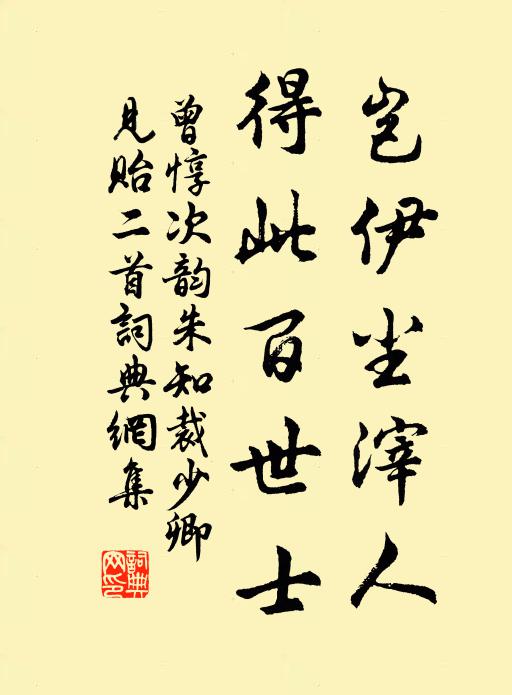 豈伊尘滓人
得此百世士
曾惇次韵朱知裁少卿
見貽二首詞典網集
詞典
网印